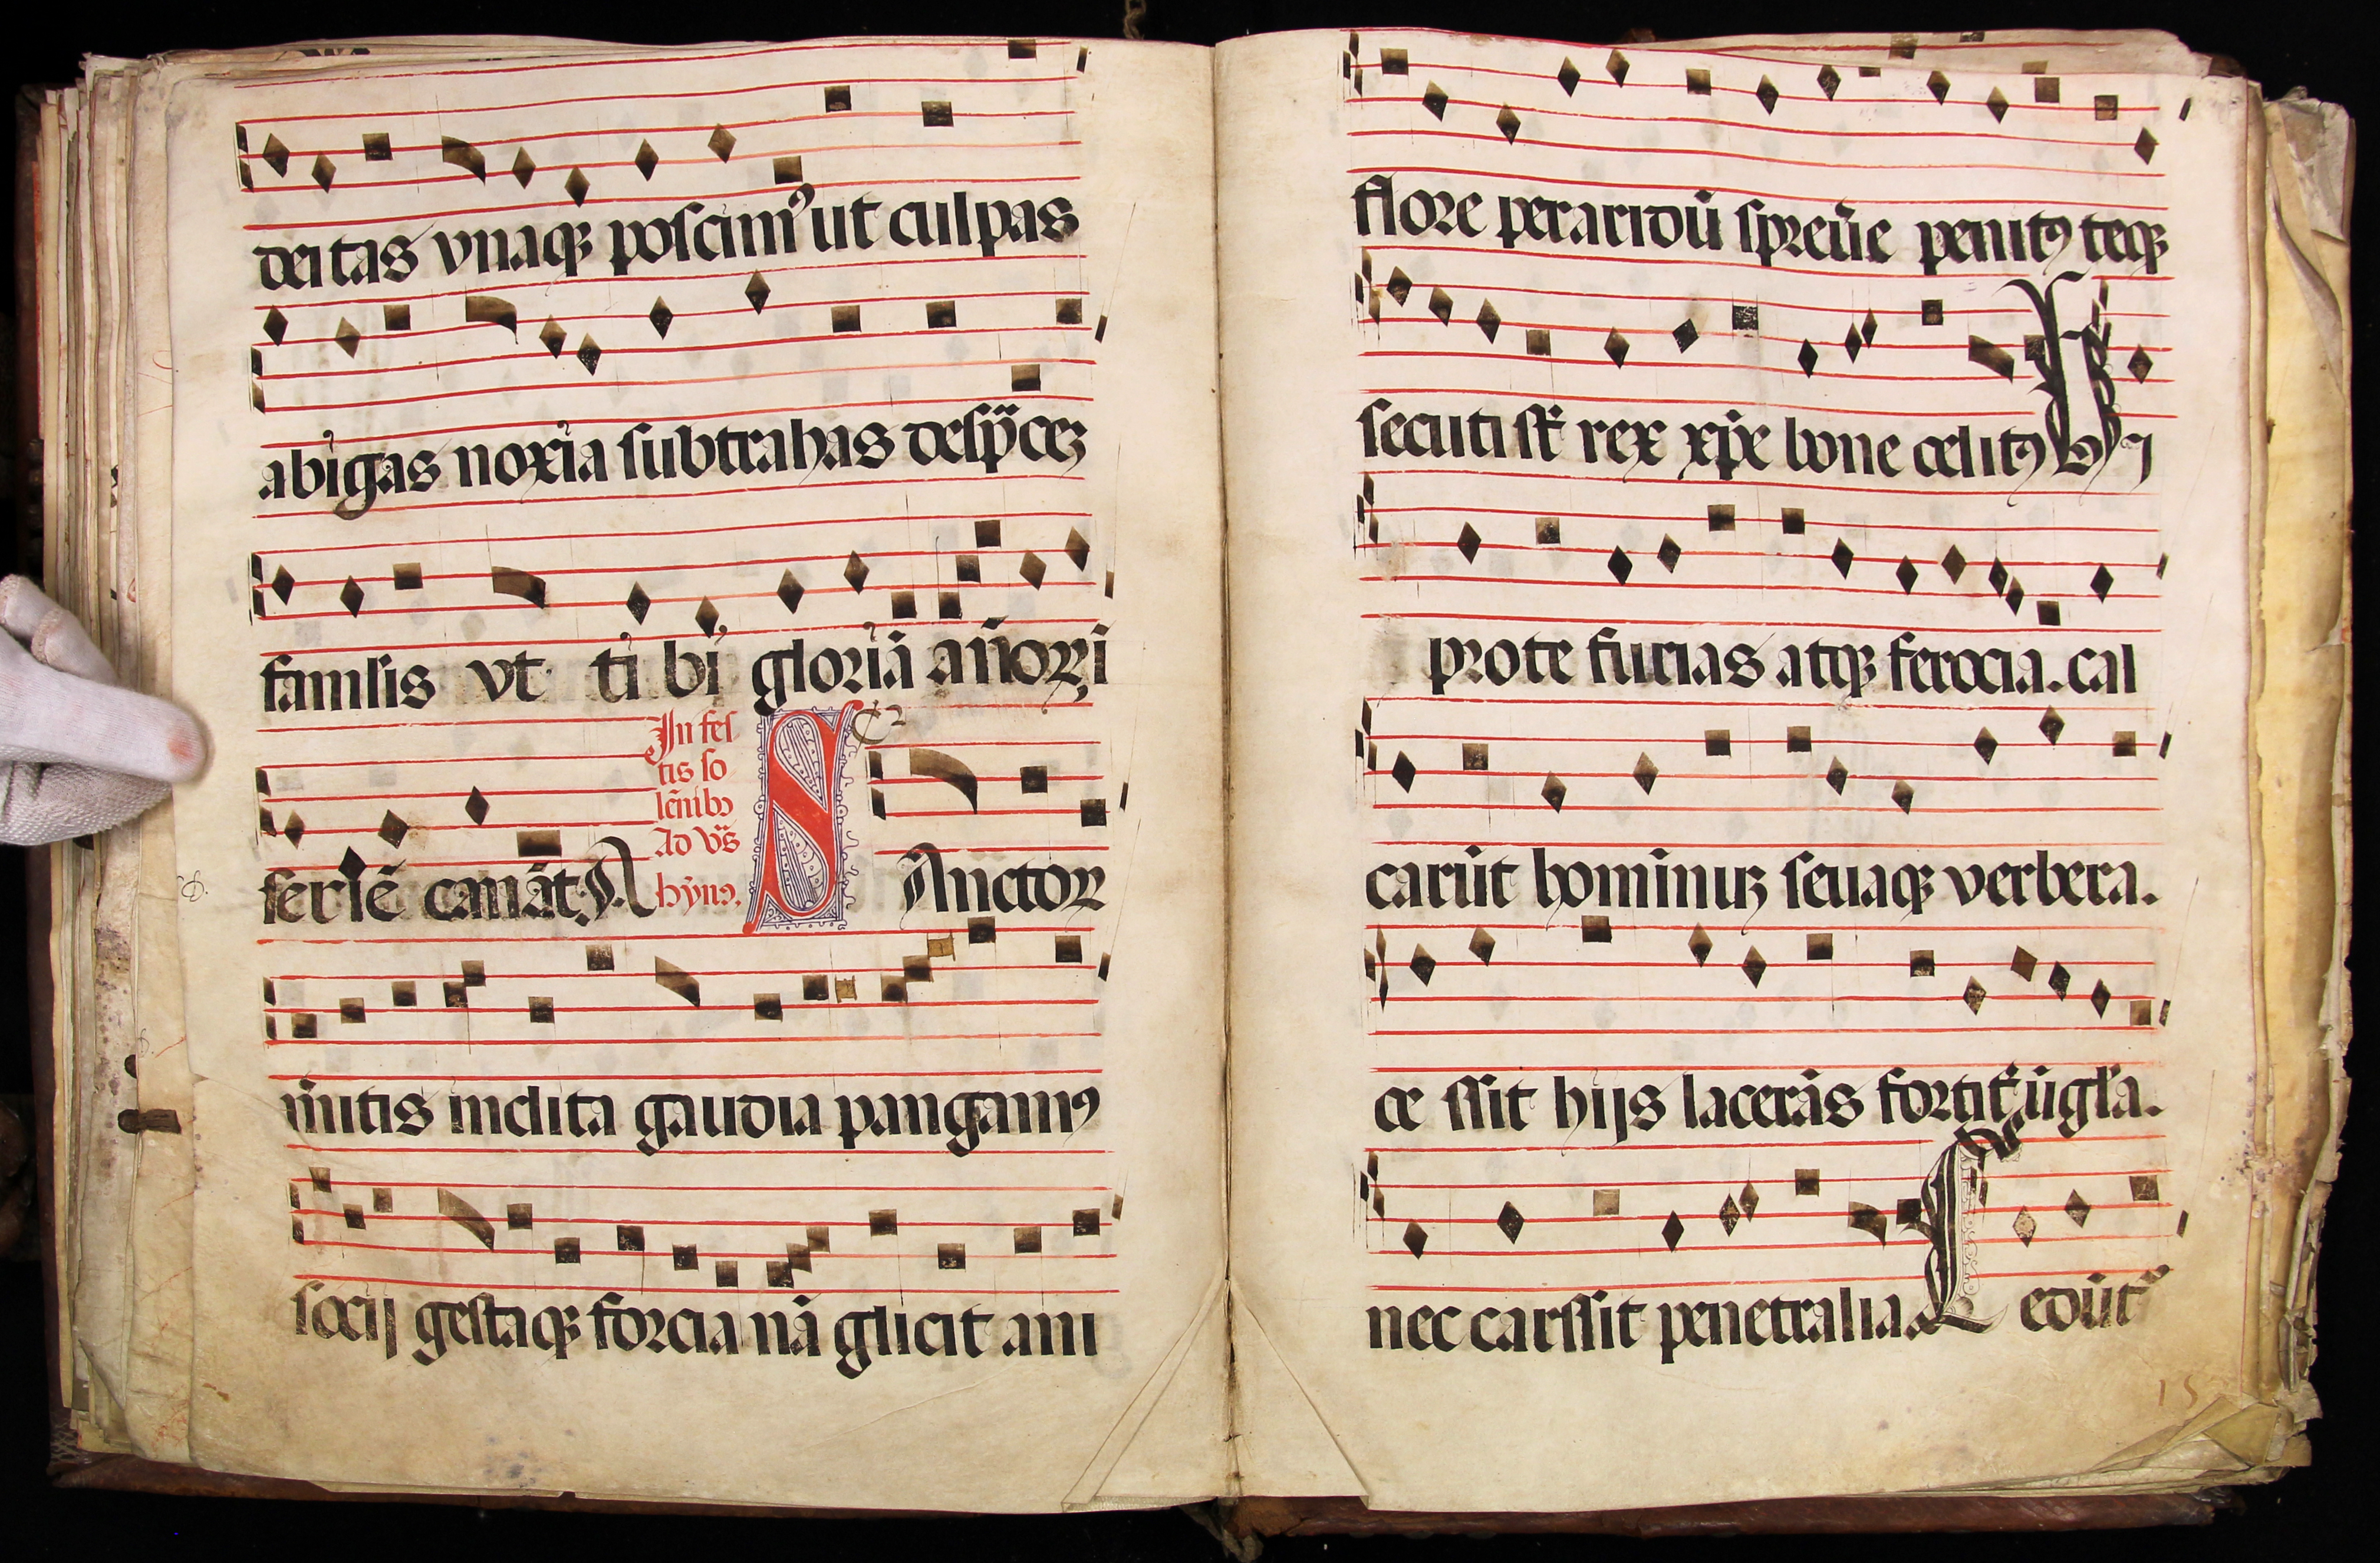 deitas vnaqꝫ poscimꝰ ut culpas
abigas noxia subtrahas des p̈cez
famlis vt ti bi gloriā añorꝝ i
seriē canāt. A
In fes
tis so
lēnibꝫ
Ad vr̄s
hȳnꝰ.
S Anctoꝝ
mitis inclita gaudia pangamꝰ
socij gestaqꝫ forcia nā glicit ani
flore per aridū spreūe penitꝰ teqꝫ
secuti st̄ rex xp̄e bone celitꝰ
pro te furias atqꝫ ferocia. cal
carūt hominuꝫ seuaqꝫ verbera.
ce ssit hijs lacerās fortit̄ ūgl̄a.
nec carssit penetralia.
edūt᷑
15